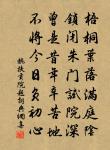 梧桐葉落滿庭陰
鎖閉朱門試院深
曾是昔年辛苦地
不將今日負初心
魏扶貢院題